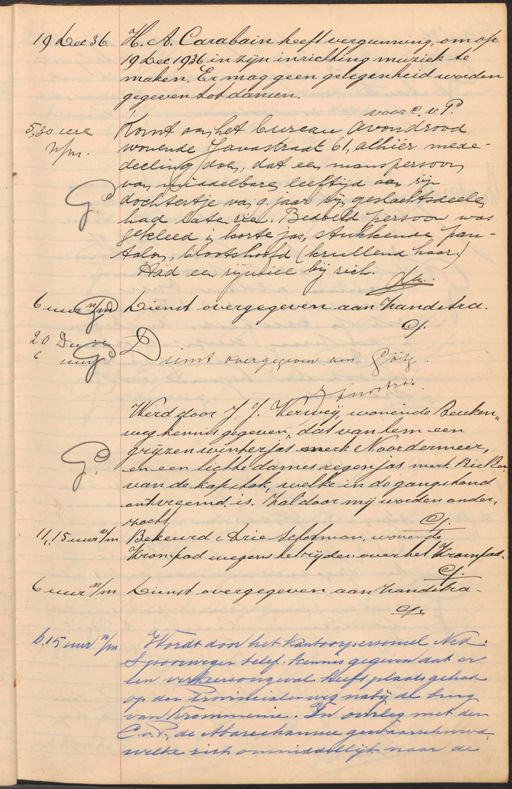 19 Dec 36. H. A. Carabain heeft vergunning, om op
19 Dec 1936 in zijn inrichting muziek te
maken. Er mag geen gelegenheid worden
gegeven tot dansen.
voor C. v. P.
5,30 ure Komt aan het bureau Avondrood
n/m. wonende Javastraat 61, alhier mede-
deeling doen, dat een manspersoon
van middelbare leeftijd aan zijn
dochtertje van 9 jaar zijn geslachtsdeelen
had laten zien. Bedoeld persoon was
gekleed in korte jas, streepende pan-
talon, blootshoofd (krullend haar)
Had een rijwiel bij zich.
6 uur n/m Dienst overgegeven aan Handstra.
20 Dec
6 uur Dienst overgegeven aan Götz.
Werd door J. J. Verweij, wonende Beuken-
weg kennisgegeven, dat van hem een
grijzen winterjas merk Noordermeer,
en een lichte damesregenjas merk
van de kapstok, welke in de gang hond
ontvreemd is. Zal door mij worden onder-
zocht.
11,15 uur n/m Bekeurd: Drie Schotman, wonende
Krompad wegens het rijden over het Krompad.
6 uur n/m Dienst overgegeven aan Handstra.
6.15 uur n/m Wordt door het kantoorpersoneel Ned.
Spoorwegen telef. kennis gegeven dat er
een verkeersongeval heeft plaats gehad
op den Provincialenweg nabij de brug
van Krommenie. In overleg met den
C. v. P. de Marechaussee gewaarschuwd,
welke zich onmiddellijk naar de